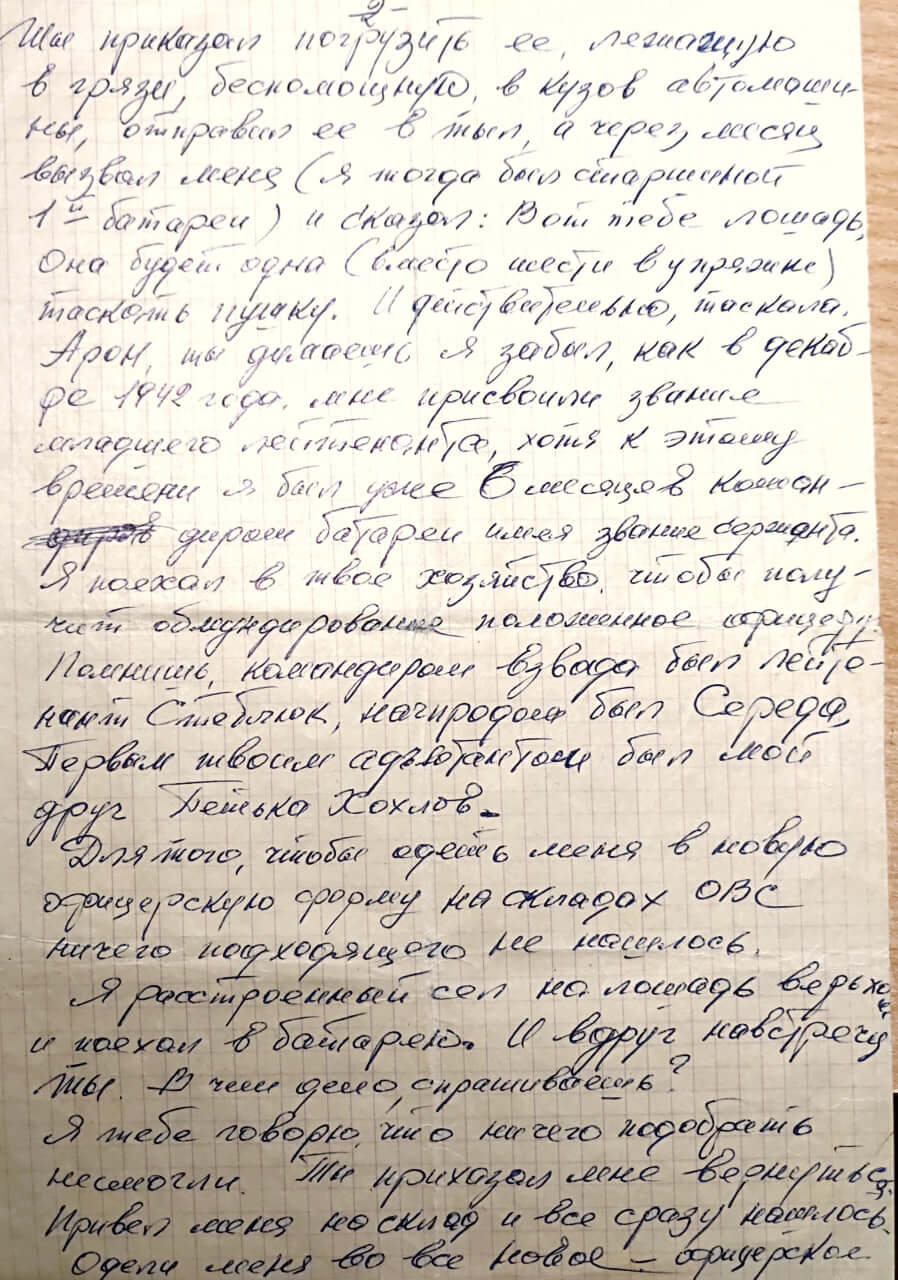 -2-
Ты приказал погрузить ее, лежащую
в грязи, беспомощную, в кузов автомаши-
ны, отправил ее в тыл, а через месяц
вызвал меня (я тогда был старшиной
1й батареи) и сказал: Вот тебе лошадь,
Она будет одна (вместо шести в упряжке)
таскать пушку. И действительно, таскала.
Арон, ты думаешь я забыл, как в декаб-
ре 1942 года, мне присвоили звание
младшего лейтенанта, хотя к этому
времени я был уже 6 месяцев коман-
диром батареи имея звание сержанта.
Я поехал в твое хозяйство, чтобы полу-
чит обмундирование положенное офицеру.
Помнишь, командиром взвода был лейте-
нант Стеблюк, начпродом был Середа,
Первым твоим адъютантом был мой
друг Петька Хохлов.
Для того, чтобы одеть меня в новую
офицерскую форму на складах ОВС
ничего подходящего не нашлось.
Я расстроенный сел на лошадь верьхом
и поехал в батарею. И вдруг навстречу
ты. В чем дело, спрашиваешь?
Я тебе говорю, что ничего подобрать
несмогли. Ты приказал мне вернуться.
Привел меня на склад и все сразу нашлось.
Одели меня во все новое – офицерское